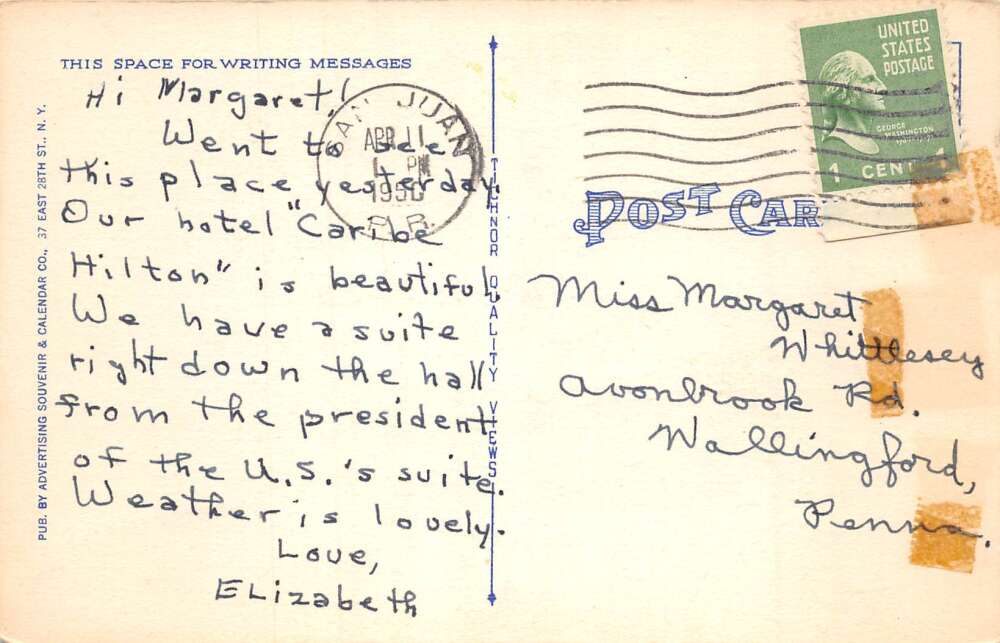 THIS SPACE FOR WRITING MESSAGES
Hi Margaret!
Went to see
this place yesterday.
Our hotel "Caribe
Hilton" is beautiful.
We have a suite
right down the hall
from the president
of the U.S.'s suite.
Weather is lovely.
Love,
Elizabeth
PUB. BY ADVERTISING SOUVENIR & CALENDAR CO., 37 EAST 28TH ST., N. Y.
TECHNOR QUALITY VIEWS
SAN JUAN
APR 11
PM
P.R.
UNITED
STATES
POSTAGE
GEORGE
WASHINGTON
1 CENT 1
POST CAR
Miss Margaret
Whittlesey
Avonbrook Rd.
Wallingford,
Penna.